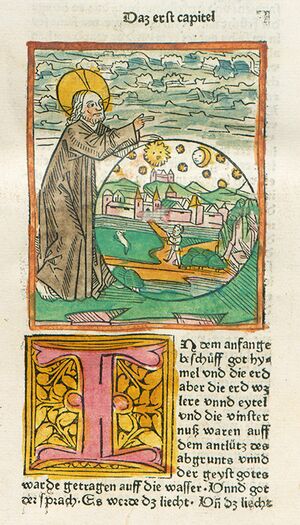 Daz erst capitel
I
In dem anfange
beschüff got hy⸗
mel vnd die erd
aber die erd wz
lere vnnd eytel
vnd die vinster
nuß waren auff
dem antlütz des
abgrunts vnnd
der geyst gotes
warde getragen auff die wasser. Vnnd got
der sprach. Es werde dz liecht. Vn̄ dz liech⸗